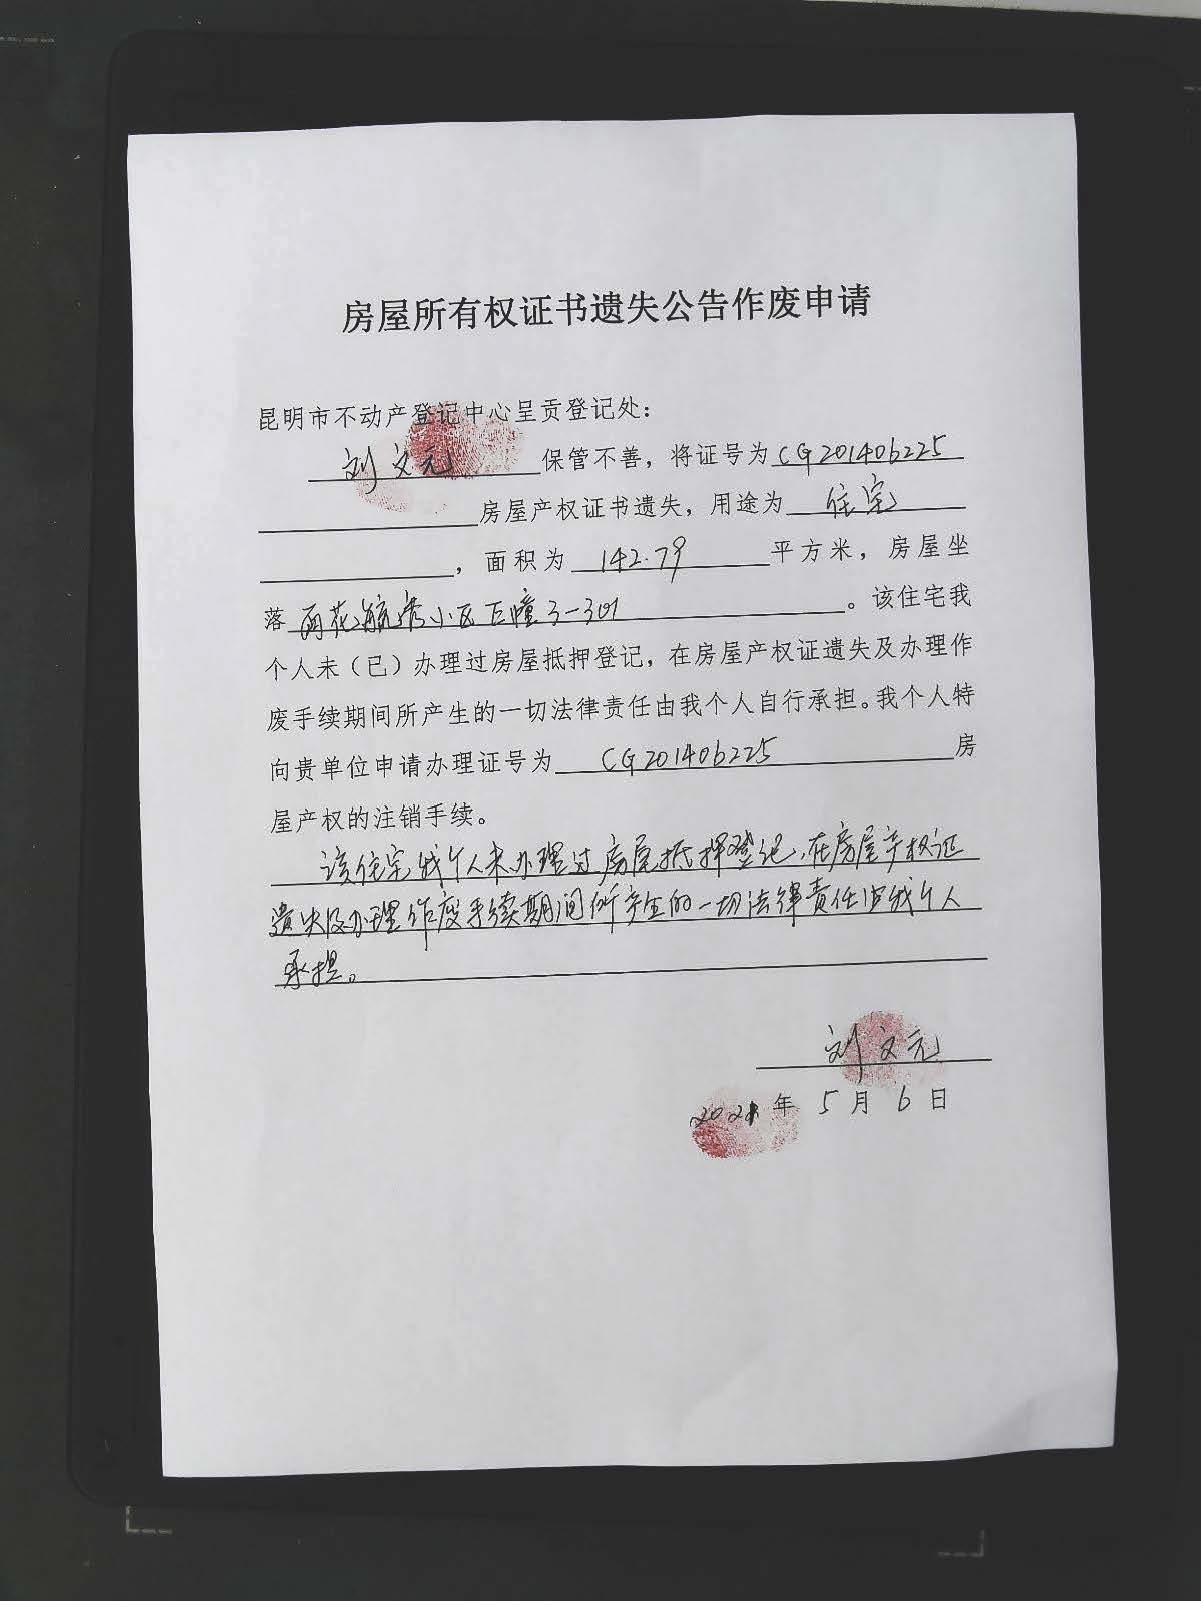 房屋所有权证书遗失公告作废申请
昆明市不动产登记中心呈贡登记处：
刘文元保管不善，将证号为CG201406225
房屋产权证书遗失，用途为住宅
，面积为142.79平方米，房屋坐
落雨花毓秀小区B幢3-301。该住宅我
个人未（已）办理过房屋抵押登记，在房屋产权证遗失及办理作
废手续期间所产生的一切法律责任由我个人自行承担。我个人特
向贵单位申请办理证号为CG201406225房
屋产权的注销手续。
该住宅我个人未办理过房屋抵押登记，在房屋产权证
遗失及办理作废手续期间所产生的一切法律责任由我个人
承担。
刘文元
2021年5月6日